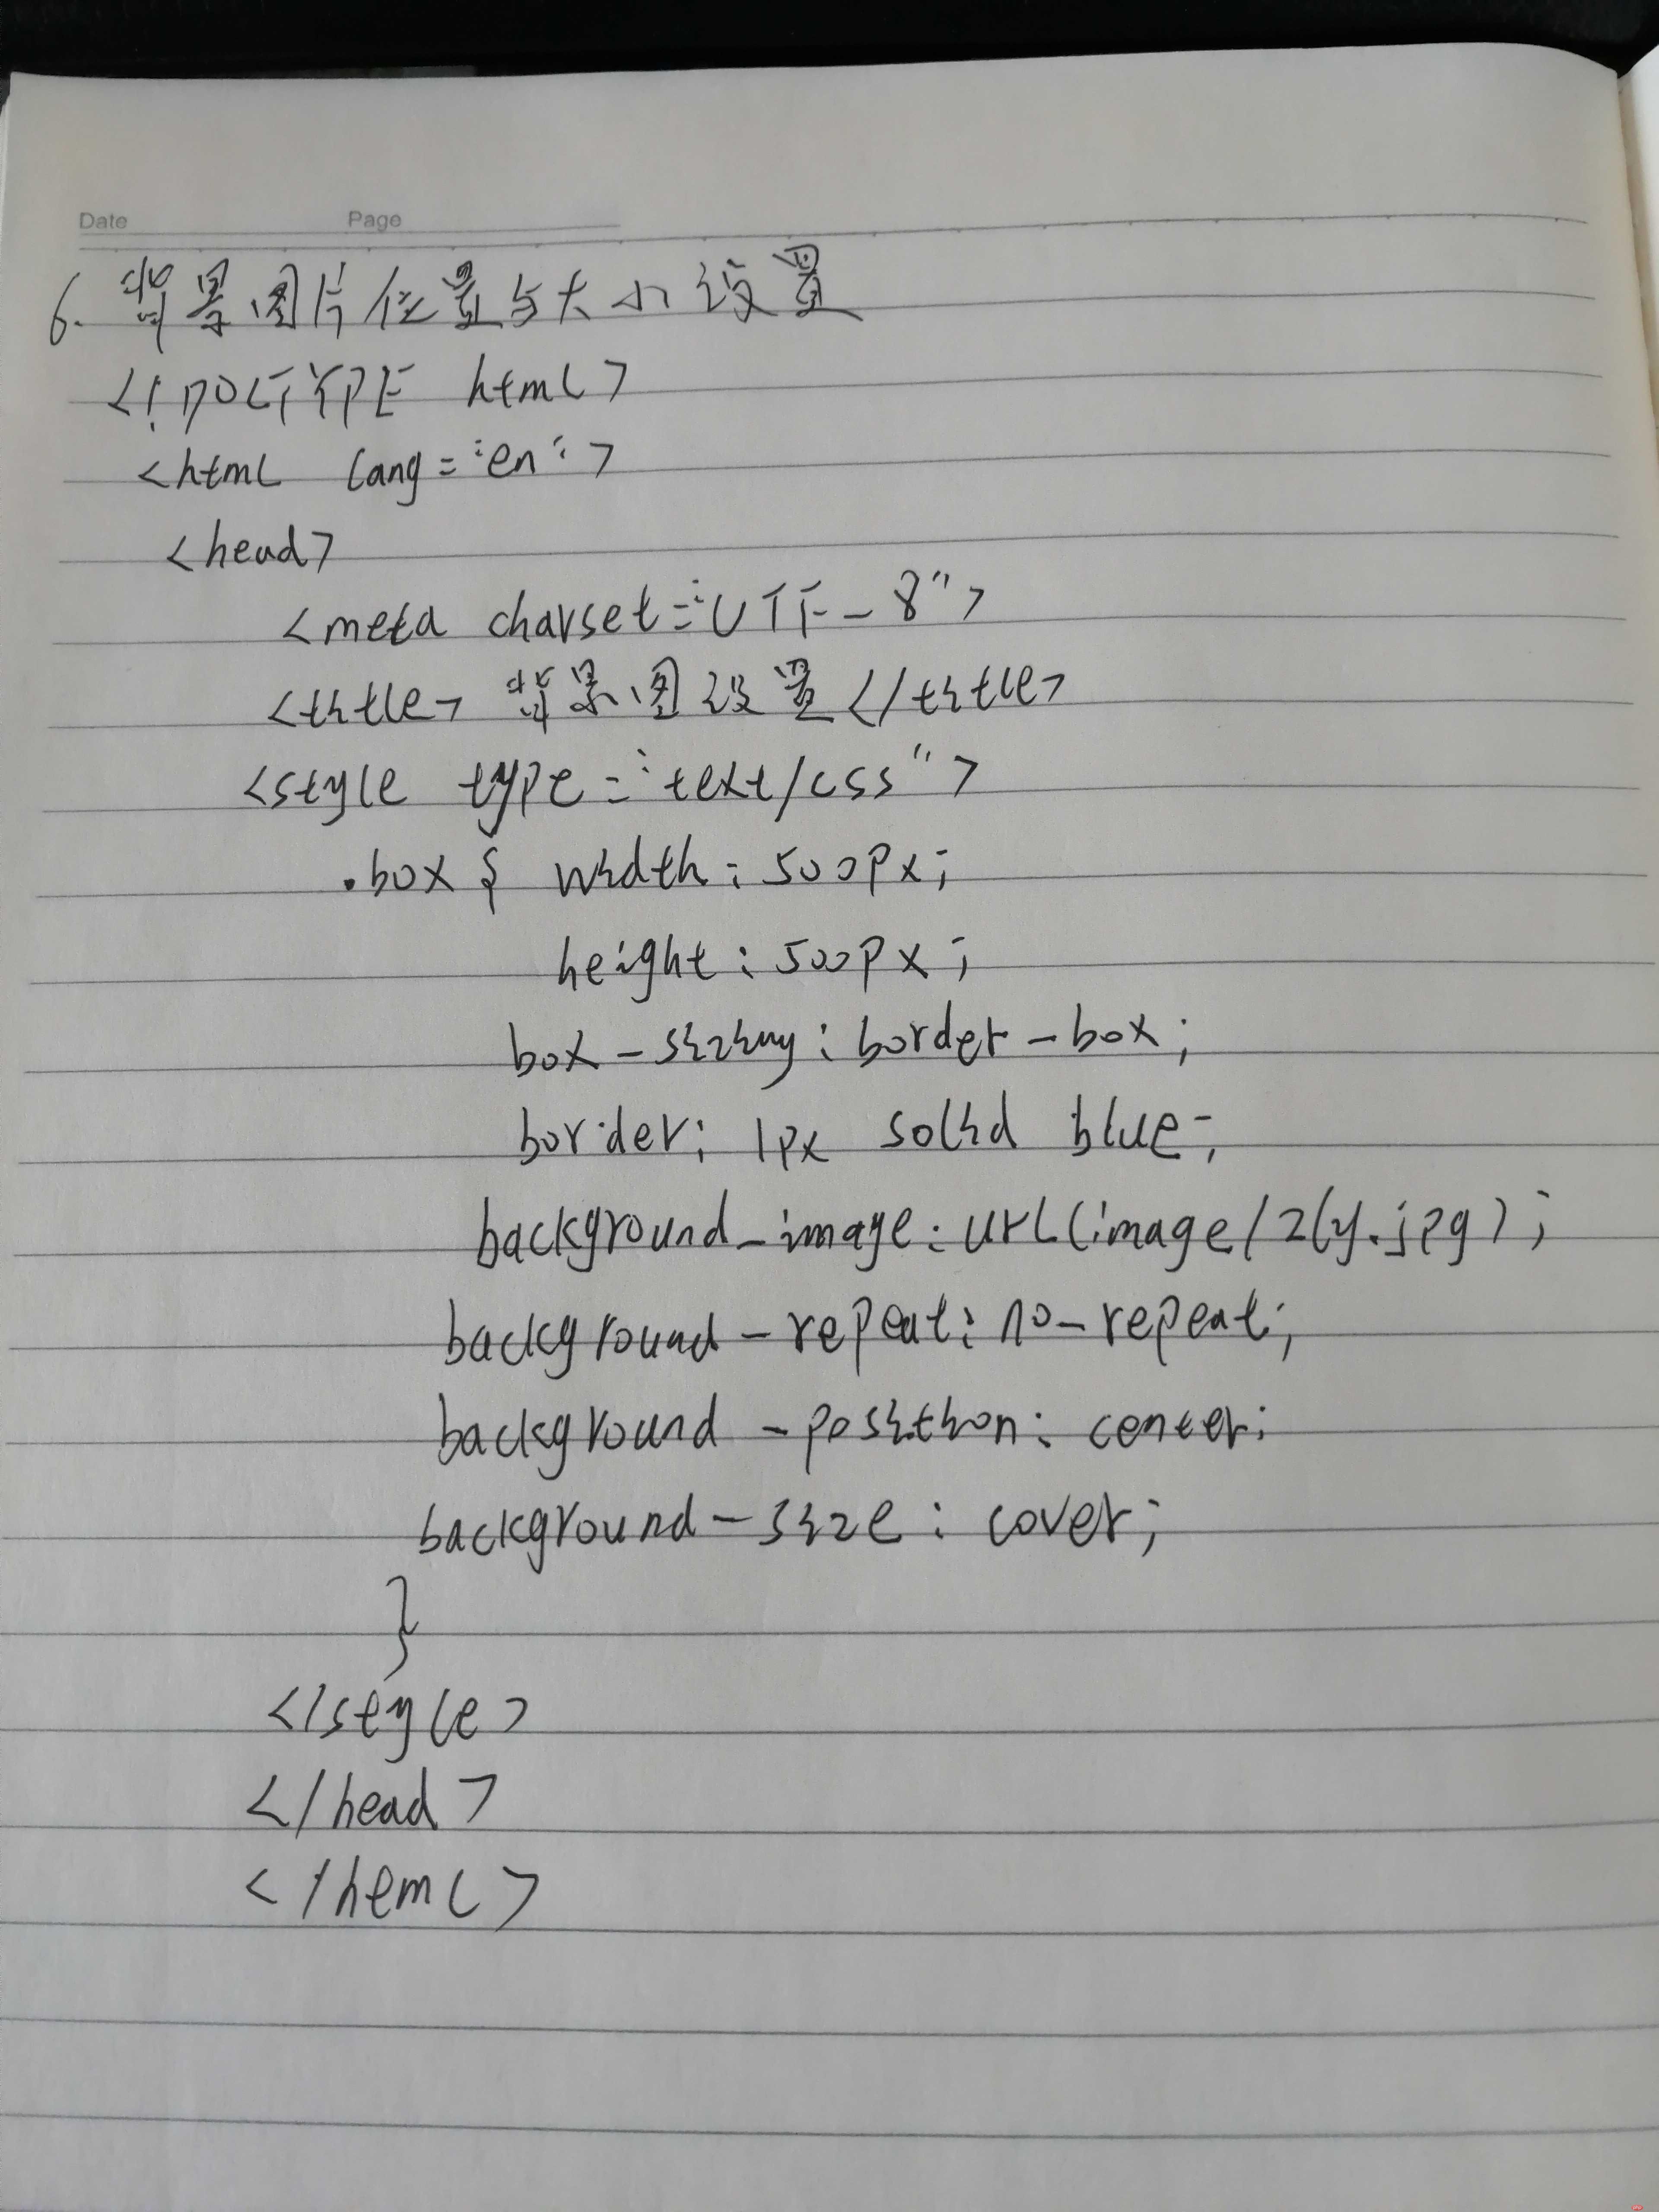 Date Page
6. 背景图片位置与大小设置
<!DOCTYPE html>
<html lang="en">
<head>
<meta charset="UTF-8">
<title>背景图设置</title>
<style type="text/css">
.box{ width:500px;
height:500px;
box-sizing:border-box;
border:1px solid blue;
background-image:url(image/zly.jpg);
background-repeat:no-repeat;
background-position:center;
background-size:cover;
}
</style>
</head>
</html>